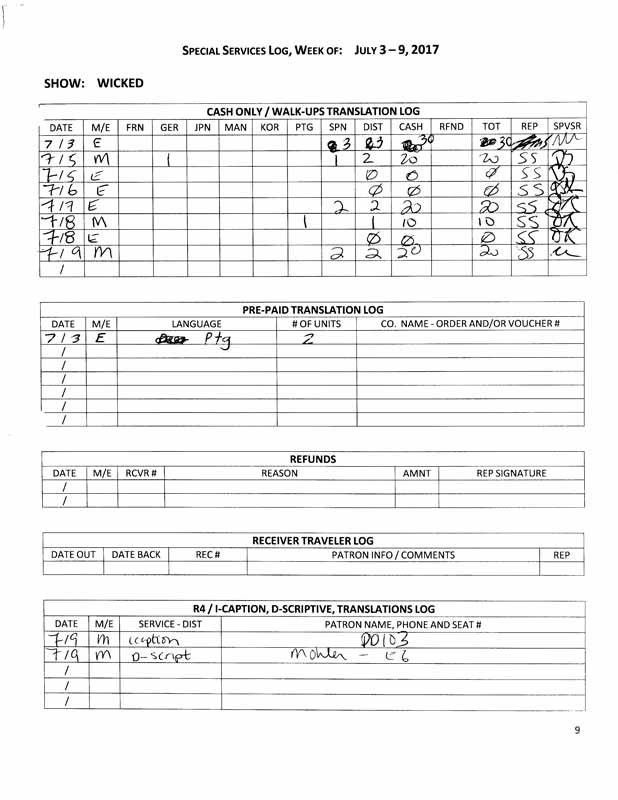 SPECIAL SERVICES LOG, WEEK OF: JULY 3 – 9, 2017
SHOW: WICKED
CASH ONLY / WALK-UPS TRANSLATION LOG
DATE M/E FRN GER JPN MAN KOR PTG SPN DIST CASH RFND TOT REP SPVSR
7/3 E 3 3 30 30
7/5 M 1 1 2 20 20 SS
7/5 E 0 0 0 SS
7/6 E 0 0 0 SS
7/7 E 2 2 20 20 SS
7/8 M 1 1 10 10 SS
7/8 E 0 0 0 SS
7/9 M 2 2 20 20 SS
/
PRE-PAID TRANSLATION LOG
DATE M/E LANGUAGE # OF UNITS CO. NAME - ORDER AND/OR VOUCHER #
7/3 E Ptg 2
/
/
/
/
/
/
REFUNDS
DATE M/E RCVR # REASON AMNT REP SIGNATURE
/
/
RECEIVER TRAVELER LOG
DATE OUT DATE BACK REC # PATRON INFO / COMMENTS REP
R4 / I-CAPTION, D-SCRIPTIVE, TRANSLATIONS LOG
DATE M/E SERVICE - DIST PATRON NAME, PHONE AND SEAT #
7/9 M iception DD103
7/9 M D-script Mohler - EE6
/
/
/
9